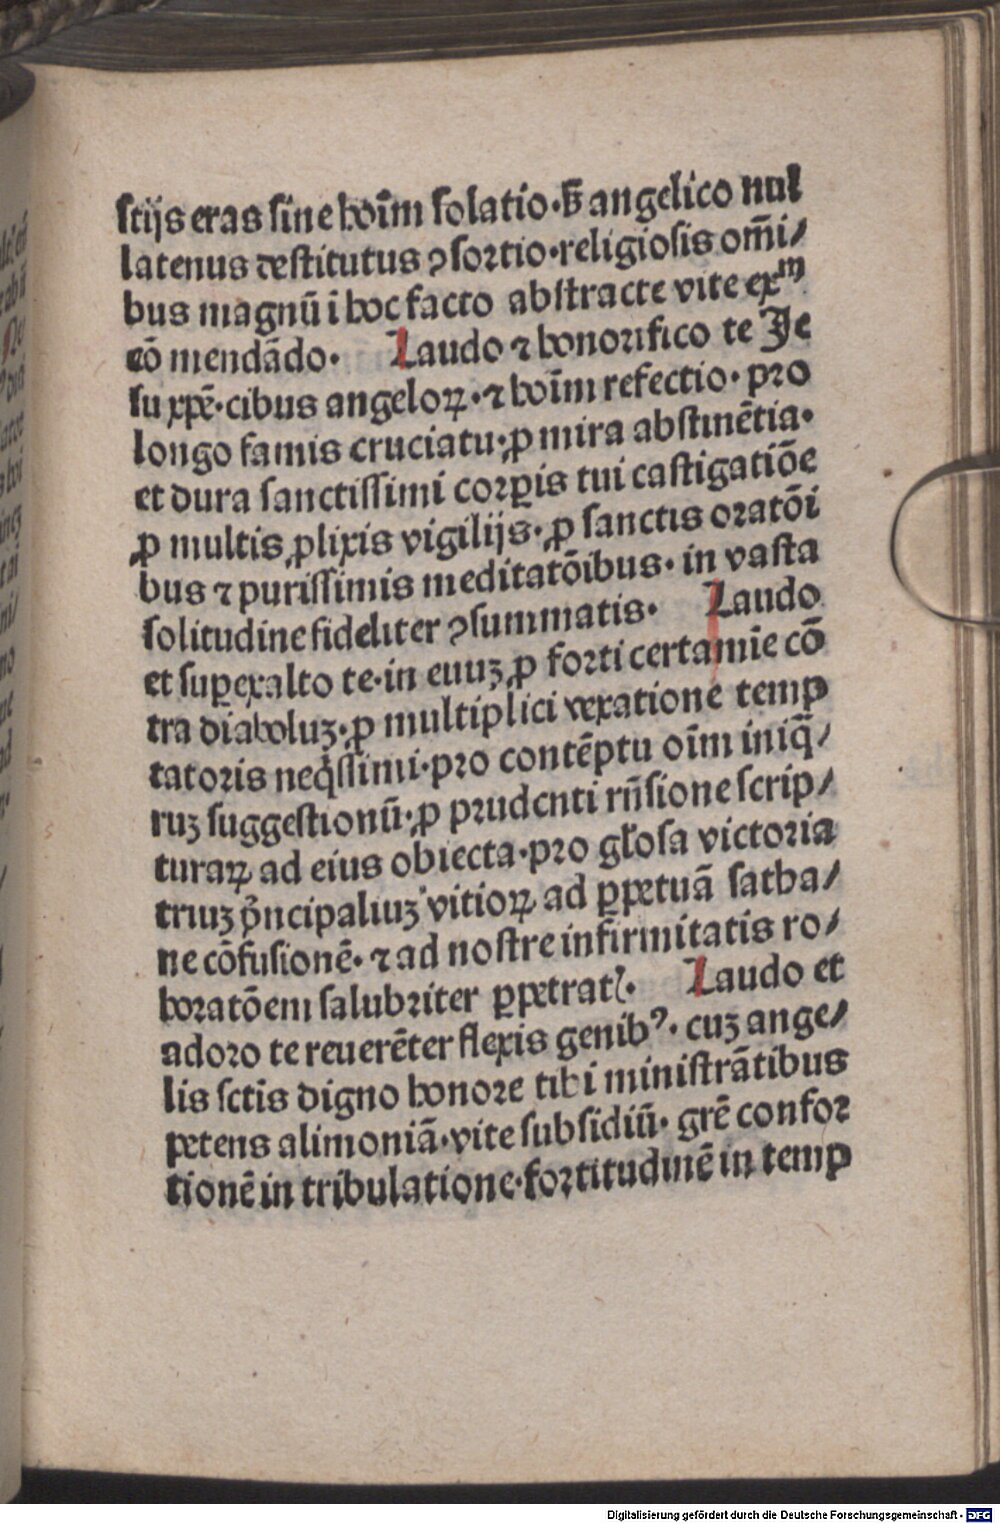 stijs eras sine hoīm solatio·s̄ꝫ angelico nul
latenus destitutus ꝯsortio·religiosis om̄i/
bus magnū i hoc facto abstracte vite exᵐ
cō mendādo· Laudo ⁊ honorifico te Je
su xp̄e·cibus angeloꝝ·⁊ hoīm refectio· pro
longo famis cruciatu·ꝓ mira abstinētia·
et dura sanctissimi corꝑis tui castigatiōe
ꝓ multis ꝓlixis vigilijs·ꝓ sanctis oratōi
bus ⁊ purissimis meditatōibus· in vasta
solitudine fideliter ꝯsummatis· Laudo
et suꝑexalto te·in euuꝫ ꝓ forti certamīe cō
tra diaboluꝫ·ꝓ multiplici vexatione temp
tatoris neq̇ssimi·pro contēptu oīm iniq̄/
ruꝫ suggestionū·ꝓ prudenti rn̄sione scrip/
turaꝝ ad eius obiecta·pro gl̄osa victoria
triuꝫ p̄ncipaliuꝫ vitioꝝ ad ꝑpetuā satha/
ne cōfusionē· ⁊ ad nostre infirmitatis ro/
boratōem salubriter ꝑpetrat̉· Laudo et
adoro te reuerēter flexis genibꝰ· cuꝫ ange/
lis sctīs digno honore tibi ministrātibus
petens alimoniā·vite subsidiū· gr̄e confor
tionē in tribulatione·fortitudinē in temp
Digitalisierung gefördert durch die Deutsche Forschungsgemeinschaft · DFG